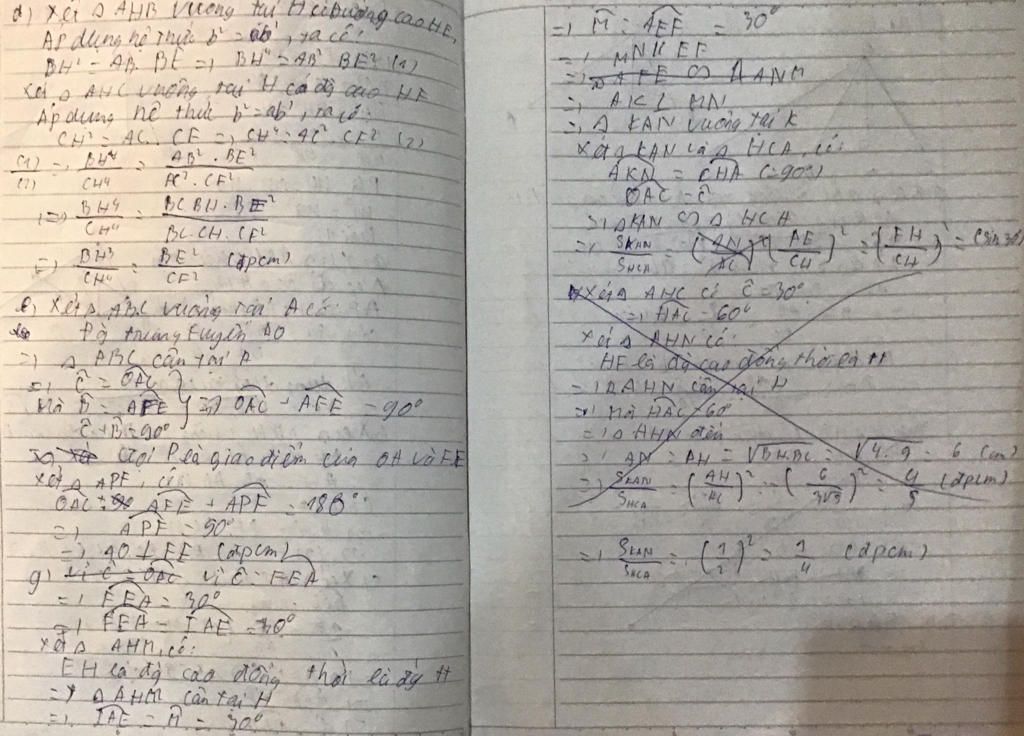 d) Xét Δ AHB vuông tại H có đường cao HE,
Áp dụng hệ thức b² = ab', ta có:
BH² = AB. BE => BH⁴ = AB² BE² (1)
Xét Δ AHC vuông tại H có đg cao HF
Áp dụng hệ thức b² = ab', ta có:
CH² = AC. CF => CH⁴ = AC². CF² (2)
(1)/(2) => BH⁴/CH⁴ = AB². BE²/AC². CF²
=> BH⁴/CH⁴ = BC. BH. BE²/BC. CH. CF²
=> BH³/CH³ = BE²/CF² (đpcm)
e) Xét Δ ABC vuông tại A có:
trung tuyến AO
=> Δ ABC cân tại A
=> Ĉ = OAC
Mà B̂ = AFE => OAC + AFE = 90°
Ĉ + B̂ = 90°
Gọi P là giao điểm của OA và FE
Xét Δ APF, có:
OAC + AFE + APF = 180°
=> APF = 90°
=> AO ⊥ EF (đpcm)
g) Vì Ĉ = OAC vì Ĉ = FEA
=> FEA = 30°
=> FEA = IAE = 30°
Xét Δ AHM, có:
EH là đg cao đồng thời là đg tt
=> Δ AHM cân tại H
=> IAE = M̂ = 30°
=> M̂ = AEF = 30°
=> MN // EF
=> Δ AFE ∽ Δ ANM
=> AK ⊥ MN
=> Δ KAN vuông tại K
Xét Δ KAN và Δ HCA, có:
AKN = CHA (=90°)
OAC = Ĉ
=> Δ KAN ∽ Δ HCA
=> S KAN/S HCA = (AN/AC)² (AE/CH)² = (FH/CH)² = (sin 30°)
Xét Δ AHC có Ĉ = 30°
=> HAC = 60°
Xét Δ AHN có:
HF là đg cao đồng thời là tt
=> Δ AHN cân tại H
Mà HAC = 60°
=> Δ AHN đều
=> AN = AH = √BH.BC = √4.9 = 6 (cm)
=> S KAN/S HCA = (AH/AC)² = (6/3√5)² = 4/5 (đpcm)
=> S KAN/S HCA = (1/2)² = 1/4 (đpcm)